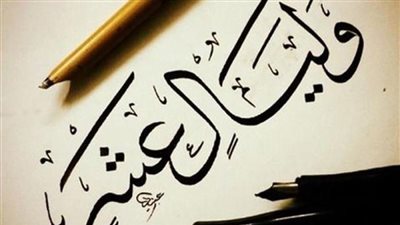 وليالٍ عشر